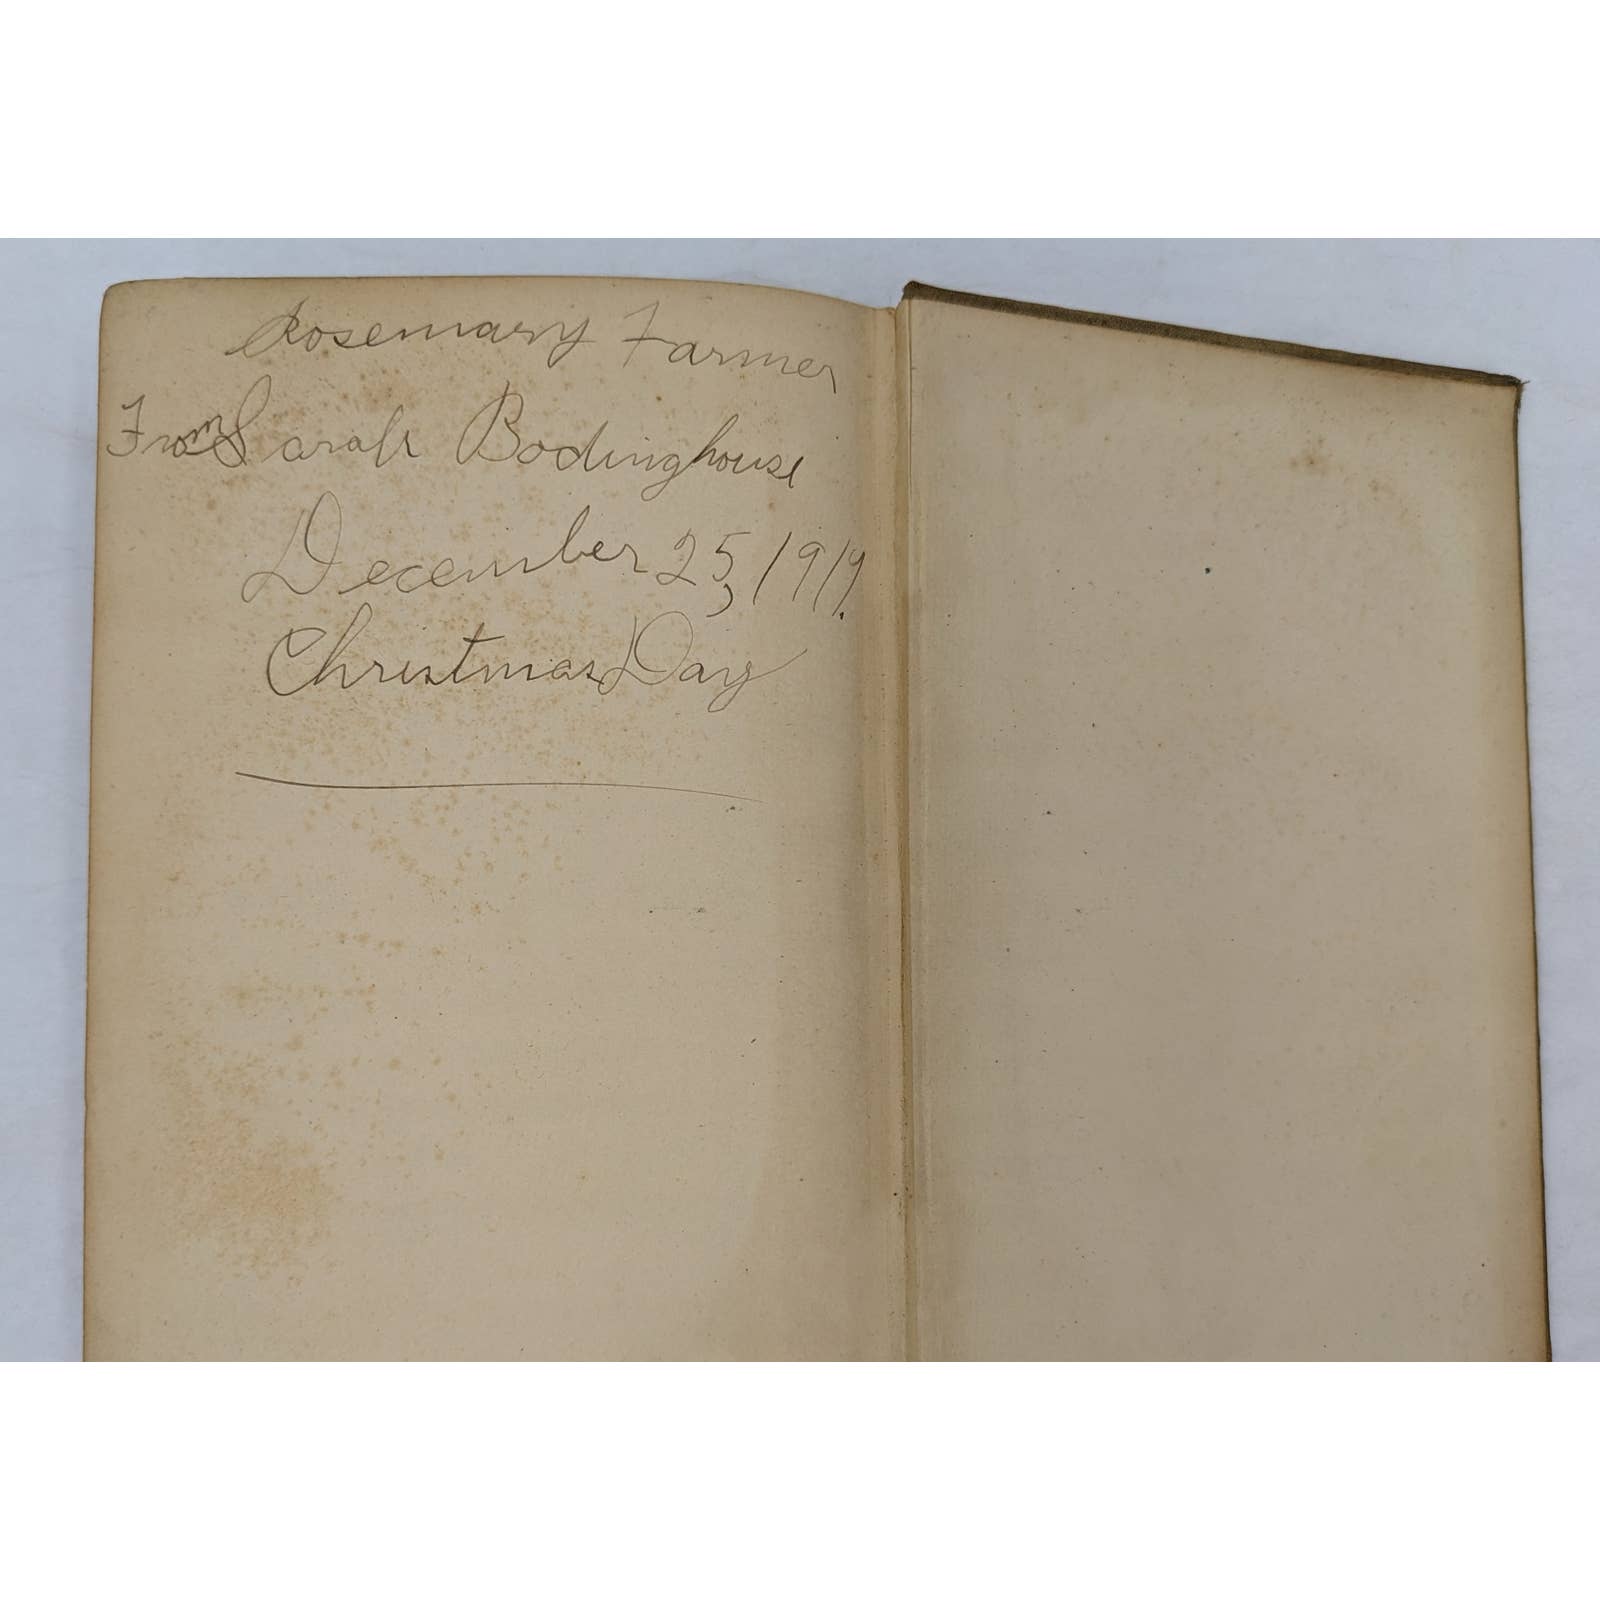 Rosemary Farmer
From Sarah Bodinghouse
December 25, 1919.
Christmas Day